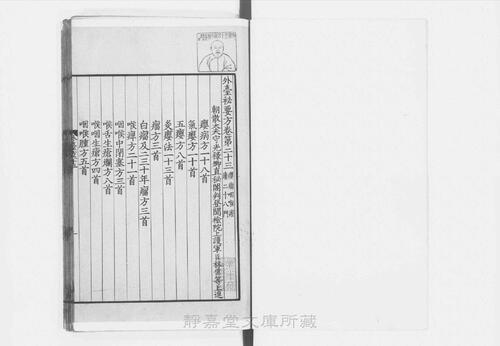 外臺祕要方卷第二十三 二十八門
朝散大夫守光祿卿直祕閣判登聞檢院上護軍臣林億等上進
癭病方一十八首
氣癭方一十首
五癭方八首
灸癭法一十三首
瘤方三首
白瘤及二三十年瘤方三首
喉痺方二十一首
咽喉中閉塞方三首
喉舌生瘡爛方八首
咽喉生瘡方四首
咽喉腫方五首
靜嘉堂文庫所藏